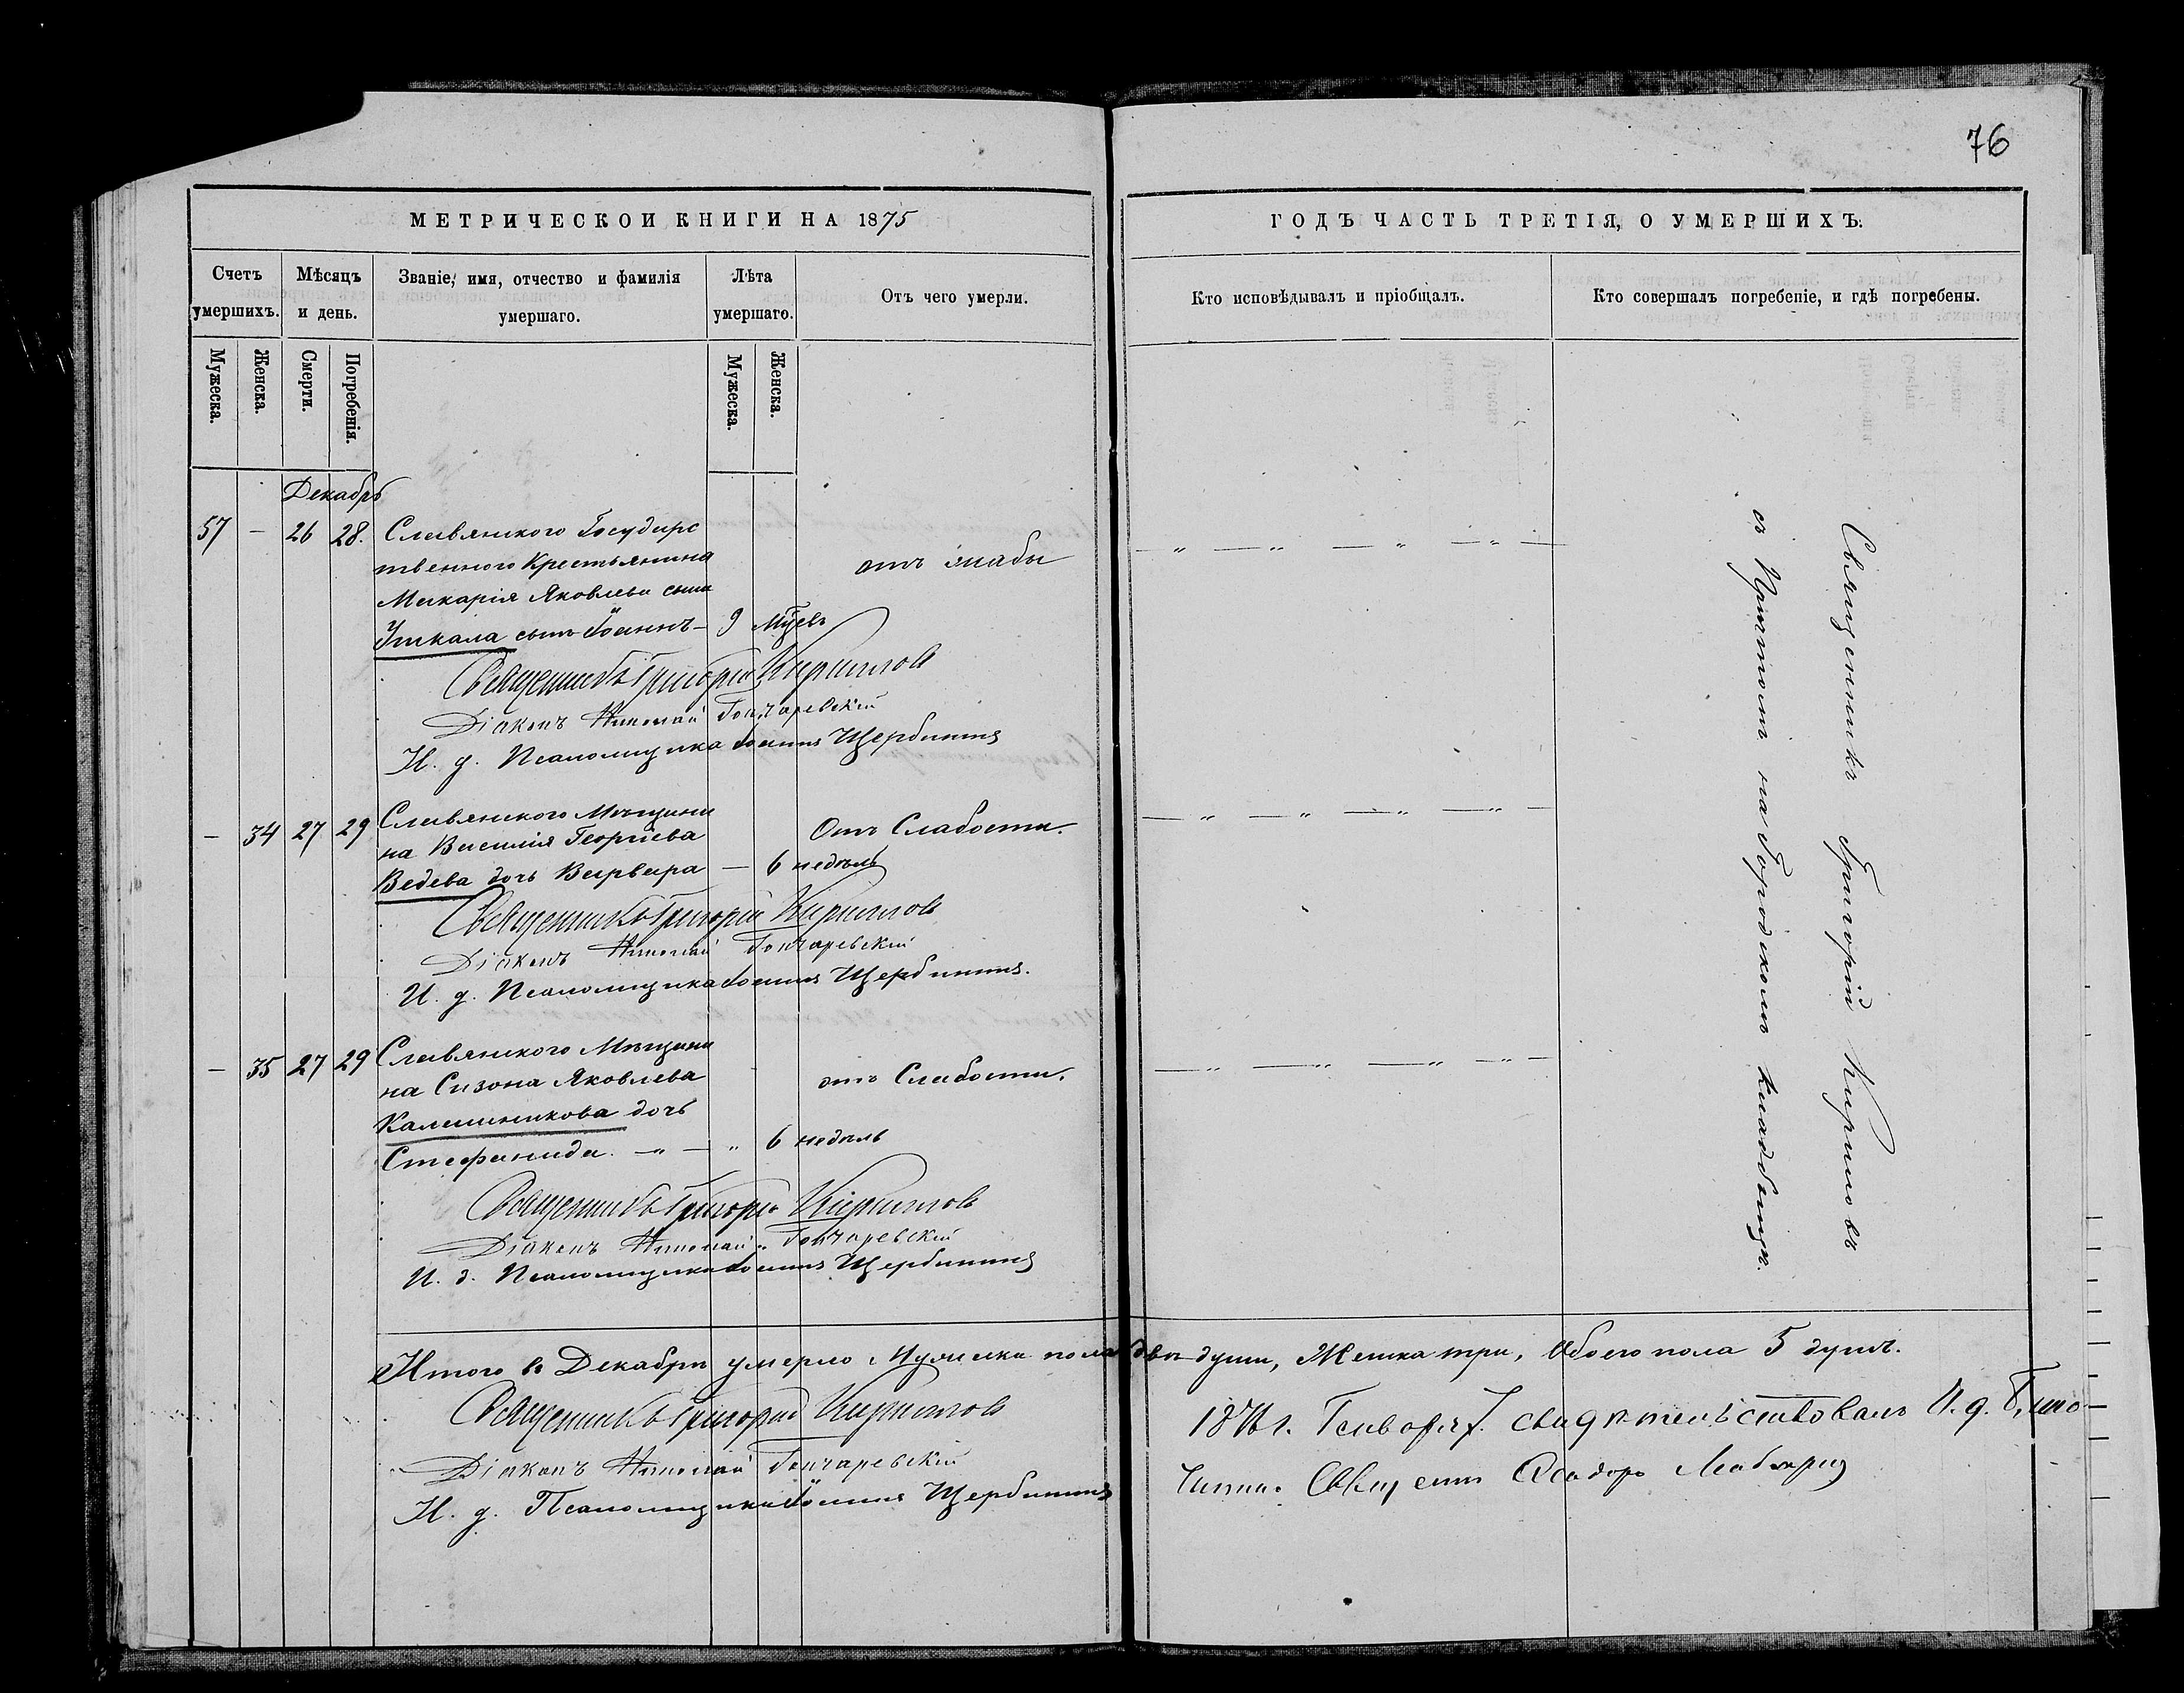 76
МЕТРИЧЕСКОЙ КНИГИ НА 1875
ГОДЪ ЧАСТЬ ТРЕТІЯ, О УМЕРШИХЪ.
Счетъ умершихъ.
Мѣсяцъ и день.
Званіе, имя, отчество и фамилія умершаго.
Лѣта умершаго.
Отъ чего умерли.
Кто исповѣдывалъ и пріобщалъ.
Кто совершалъ погребеніе, и гдѣ погребены.
Мужеска.
Женска.
Смерти.
Погребенія.
Мужеска.
Женска.
Декабрь
57 — 26 28. Славянского Государс
твенного Крестьянина
Макарія Яковлева сына
сынъ Іоаннъ — 9 Мцевъ
Священникъ Григорій Кириловъ
Діаконъ Николай Гончаревскій
И. д. Псаломщика Іоаннъ Щербининъ
— 34 27 29 Славянского Мѣщани
на Василія Георгіева Отъ Слабости.
Ведева дочь Варвара — 6 недѣль
Священникъ Григорій Кириловъ
Діаконъ Николай Гончаревскій
И. д. Псаломщика Іоаннъ Щербининъ.
— 35 27 29 Славянского Мѣщани
на Сизона Яковлева отъ Слабости.
Калашникова дочь
Стефанида. — „ — „ 6 недѣль
Священникъ Григорій Кириловъ
Діаконъ Николай Гончаревскій
И. д. Псаломщика Іоаннъ Щербининъ
Священникъ Григорій Кириловъ
съ Причтомъ на Городскомъ кладбищѣ.
Итого въ Декабрѣ умерло Мужеска пола двѣ души, Женска три, Обоего пола 5 душъ.
Священникъ Григорій Кириловъ
Діаконъ Николай Гончаревскій
И. д. Псаломщика Іоаннъ Щербининъ
1876 г. Генваря 7. свидѣтельствовалъ И. д. Благо
чинна. Священ